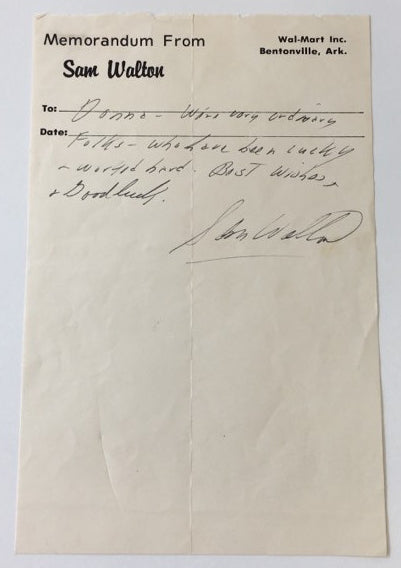 Memorandum From
Sam Walton
Wal-Mart Inc.
Bentonville, Ark.
To: Donna - We're very ordinary
Date: Folks - who have been lucky
- worked hard. Best Wishes,
& Good luck.
Sam Walton